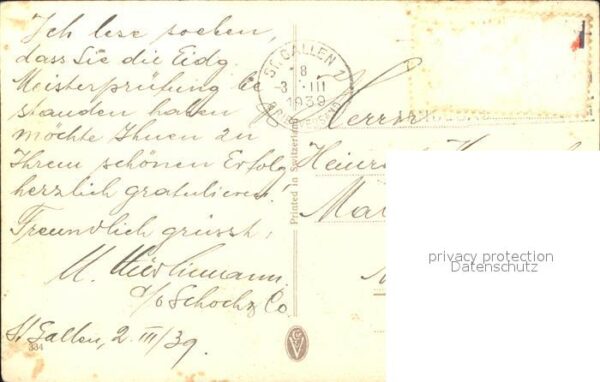 Ich lese soeben,
dass Sie die Eidg
Meisterprüfung be
standen haben
möchte Ihnen zu
Ihrem schönen Erfolg
herzlich gratulieren!
Freundlich grüsst,
c/o Schoch & Co.
St. Gallen, 2. III/39.
334
ST. GALLEN 1
8
-3. III
1939
Printed in Switzerland
Herrn
privacy protection
Datenschutz